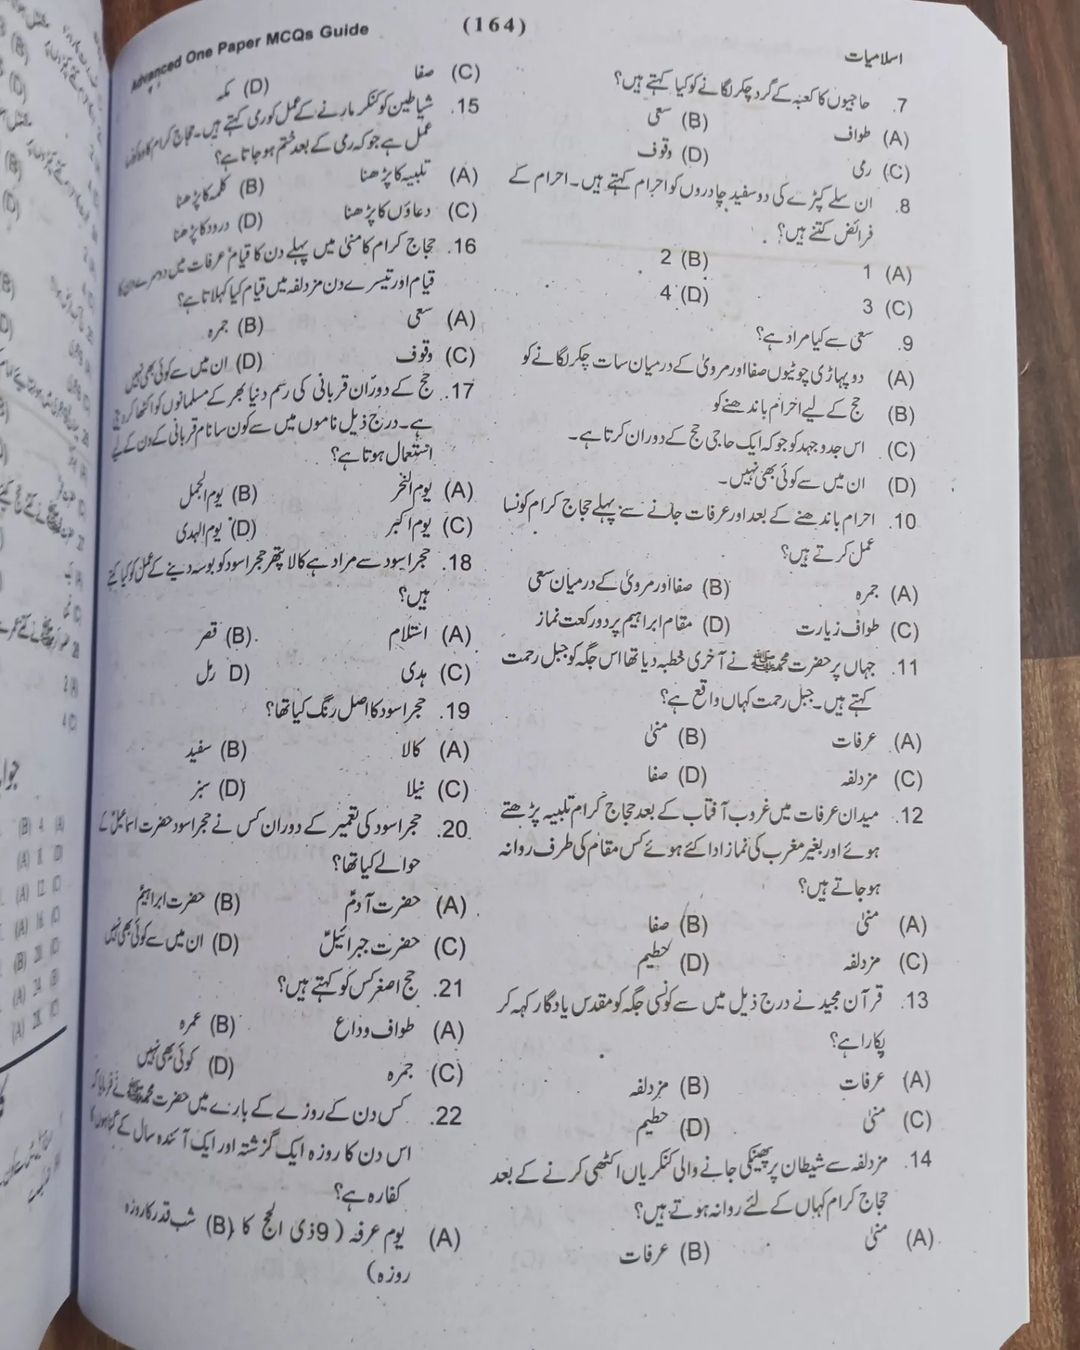 Advanced One Paper MCQs Guide
(164)
اسلامیات
7. حاجیوں کا کعبہ کے گرد چکر لگانے کو کیا کہتے ہیں؟
(A) طواف (B) سعی
(C) رمی (D) وقوف
8. ان سلے کپڑے کی دو سفید چادروں کو احرام کہتے ہیں۔ احرام کے
فرائض کتنے ہیں؟
(A) 1 (B) 2
(C) 3 (D) 4
9. سعی سے کیا مراد ہے؟
(A) دو پہاڑی چوٹیوں صفا اور مرویٰ کے درمیان سات چکر لگانے کو
(B) حج کے لیے احرام باندھنے کو
(C) اس جدوجہد کو جو کہ ایک حاجی حج کے دوران کرتا ہے۔
(D) ان میں سے کوئی بھی نہیں۔
10. احرام باندھنے کے بعد اور عرفات جانے سے پہلے حجاج کرام کونسا
عمل کرتے ہیں؟
(A) جمرہ (B) صفا اور مرویٰ کے درمیان سعی
(C) طواف زیارت (D) مقام ابراہیم پر دو رکعت نماز
11. جہاں پر حضرت محمد ﷺ نے آخری خطبہ دیا تھا اس جگہ کو جبل رحمت
کہتے ہیں۔ جبل رحمت کہاں واقع ہے؟
(A) عرفات (B) منیٰ
(C) مزدلفہ (D) صفا
12. میدان عرفات میں غروب آفتاب کے بعد حجاج کرام تلبیہ پڑھتے
ہوئے اور بغیر مغرب کی نماز ادا کئے ہوئے کس مقام کی طرف روانہ
ہو جاتے ہیں؟
(A) منیٰ (B) صفا
(C) مزدلفہ (D) حطیم
13. قرآن مجید نے درج ذیل میں سے کونسی جگہ کو مقدس یادگار کہہ کر
پکارا ہے؟
(A) عرفات (B) مزدلفہ
(C) منیٰ (D) حطیم
14. مزدلفہ سے شیطان پر پھینکی جانے والی کنکریاں اکٹھی کرنے کے بعد
حجاج کرام کہاں کے لئے روانہ ہوتے ہیں؟
(A) منیٰ (B) عرفات
(C) صفا (D) مکہ
15. شیاطین کو کنکر مارنے کے عمل کو رمی کہتے ہیں۔ حجاج کرام کا وہ کونسا
عمل ہے جو کہ رمی کے بعد ختم ہو جاتا ہے؟
(A) تلبیہ کا پڑھنا (B) کلمہ کا پڑھنا
(C) دعاؤں کا پڑھنا (D) درود کا پڑھنا
16. حجاج کرام کا منیٰ میں پہلے دن کا قیام عرفات میں دوسرے دن کا
قیام اور تیسرے دن مزدلفہ میں قیام کیا کہلاتا ہے؟
(A) سعی (B) جمرہ
(C) وقوف (D) ان میں سے کوئی بھی نہیں
17. حج کے دوران قربانی کی رسم دنیا بھر کے مسلمانوں کو اکٹھا کر دیتی
ہے۔ درج ذیل ناموں میں سے کون سا نام قربانی کے دن کے لیے
استعمال ہوتا ہے؟
(A) یوم النحر (B) یوم الجمل
(C) یوم اکبر (D) یوم الہدی
18. حجر اسود سے مراد ہے کالا پتھر حجر اسود کو بوسہ دینے کے عمل کو کیا کہتے
ہیں؟
(A) استلام (B) قصر
(C) ہدی D) رمل
19. حجر اسود کا اصل رنگ کیا تھا؟
(A) کالا (B) سفید
(C) نیلا (D) سبز
20. حجر اسود کی تعمیر کے دوران کس نے حجر اسود حضرت اسماعیلؑ کے
حوالے کیا تھا؟
(A) حضرت آدمؑ (B) حضرت ابراہیمؑ
(C) حضرت جبرائیلؑ (D) ان میں سے کوئی بھی نہیں
21. حج اصغر کس کو کہتے ہیں؟
(A) طواف وداع (B) عمرہ
(C) جمرہ (D) کوئی بھی نہیں
22. کس دن کے روزے کے بارے میں حضرت محمد ﷺ نے فرمایا کہ
اس دن کا روزہ ایک گزشتہ اور ایک آئندہ سال کے گناہوں کا
کفارہ ہے؟
(A) یوم عرفہ (9 ذی الحج کا (B) شب قدر کا روزہ
روزہ)